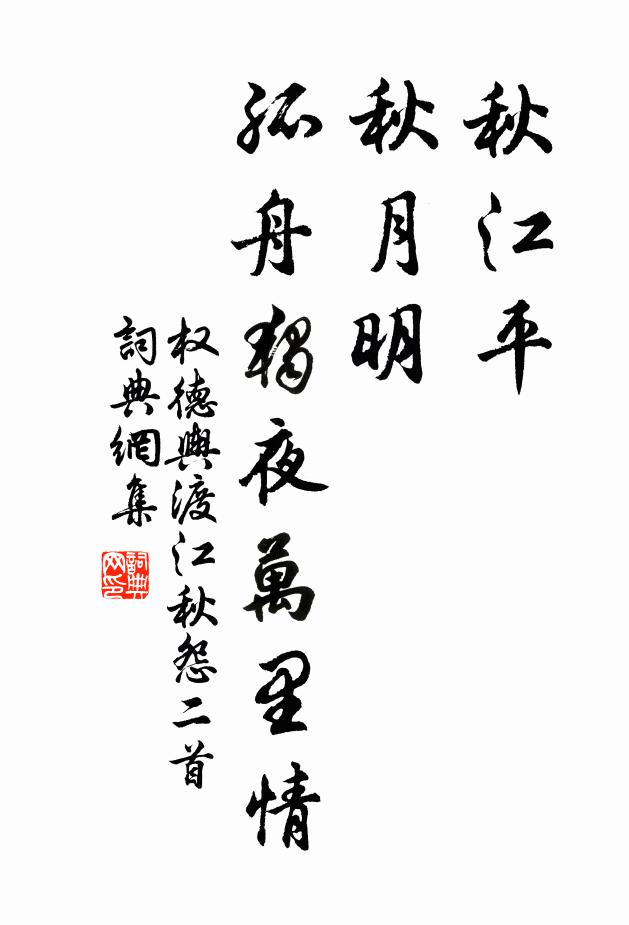 秋江平
秋月明
孤舟獨夜萬里情
权德輿渡江秋怨二首
詞典網集
詞典网印